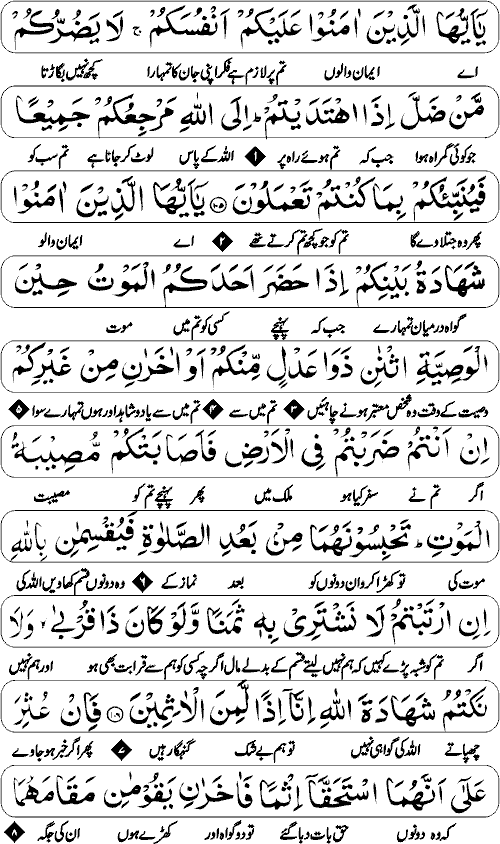 يٰۤاَيُّهَا الَّذِيۡنَ اٰمَنُوۡا عَلَيۡكُمۡ اَنۡفُسَكُمۡ ۚ لَا يَضُرُّكُمۡ
اے ایمان والوں تم پر لازم ہے فکر اپنی جان کا تمہارا کچھ نہیں بگاڑتا
مَّنۡ ضَلَّ اِذَا اهۡتَدَيۡتُمۡ ؕ اِلَى اللّٰهِ مَرۡجِعُكُمۡ جَمِيۡعًا
جو کوئی گمراہ ہوا جب کہ تم ہوئے راہ پر ۱ اللہ کے پاس لوٹ کر جانا ہے تم سب کو
فَيُنَبِّئُكُمۡ بِمَا كُنۡتُمۡ تَعۡمَلُوۡنَ ۱۰۵ يٰۤاَيُّهَا الَّذِيۡنَ اٰمَنُوۡا
پھر وہ جتلاوے گا تم کو جو کچھ تم کرتے تھے ۲ اے ایمان والو
شَهَادَةُ بَيۡنِكُمۡ اِذَا حَضَرَ اَحَدَكُمُ الۡمَوۡتُ حِيۡنَ
گواہ درمیان تمہارے جب کہ پہنچے کسی کو تم میں موت
الۡوَصِيَّةِ اثۡنٰنِ ذَوَا عَدۡلٍ مِّنۡكُمۡ اَوۡ اٰخَرٰنِ مِنۡ غَيۡرِكُمۡ
وصیت کے وقت دو شخص معتبر ہونے چاہئیں ۳ تم میں سے ۴ تم میں سے یا دو شاہد اور ہوں تمہارے سوا ۵
اِنۡ اَنۡتُمۡ ضَرَبۡتُمۡ فِى الۡاَرۡضِ فَاَصَابَتۡكُمۡ مُّصِيۡبَةُ
اگر تم نے سفر کیا ہو ملک میں پھر پہنچے تم کو مصیبت
الۡمَوۡتِ ؕ تَحۡبِسُوۡنَهُمَا مِنۡۢ بَعۡدِ الصَّلٰوةِ فَيُقۡسِمٰنِ بِاللّٰهِ
موت کی تو کھڑا کرو ان دونوں کو بعد نماز کے ۶ وہ دونوں قسم کھاویں اللہ کی
اِنِ ارۡتَبۡتُمۡ لَا نَشۡتَرِىۡ بِهٖ ثَمَنًا وَّلَوۡ كَانَ ذَا قُرۡبٰى ۙ وَلَا
اگر تم کو شبہ پڑے کہیں کہ ہم نہیں لیتے قسم کے بدلے مال اگرچہ کسی کو ہم سے قرابت بھی ہو اور ہم نہیں
نَكۡتُمُ شَهَادَةَ اللّٰهِ اِنَّاۤ اِذًا لَّمِنَ الۡاٰثِمِيۡنَ ۱۰۶ فَاِنۡ عُثِرَ
چھپاتے اللہ کی گواہی نہیں تو ہم بے شک گنہگار ہیں ۷ پھر اگر خبر ہو جاوے
عَلٰٓى اَنَّهُمَا اسۡتَحَقَّاۤ اِثۡمًا فَاٰخَرٰنِ يَقُوۡمٰنِ مَقَامَهُمَا
کہ وہ دونوں حق بات دبا گئے تو دو گواہ اور کھڑے ہوں ان کی جگہ ۸